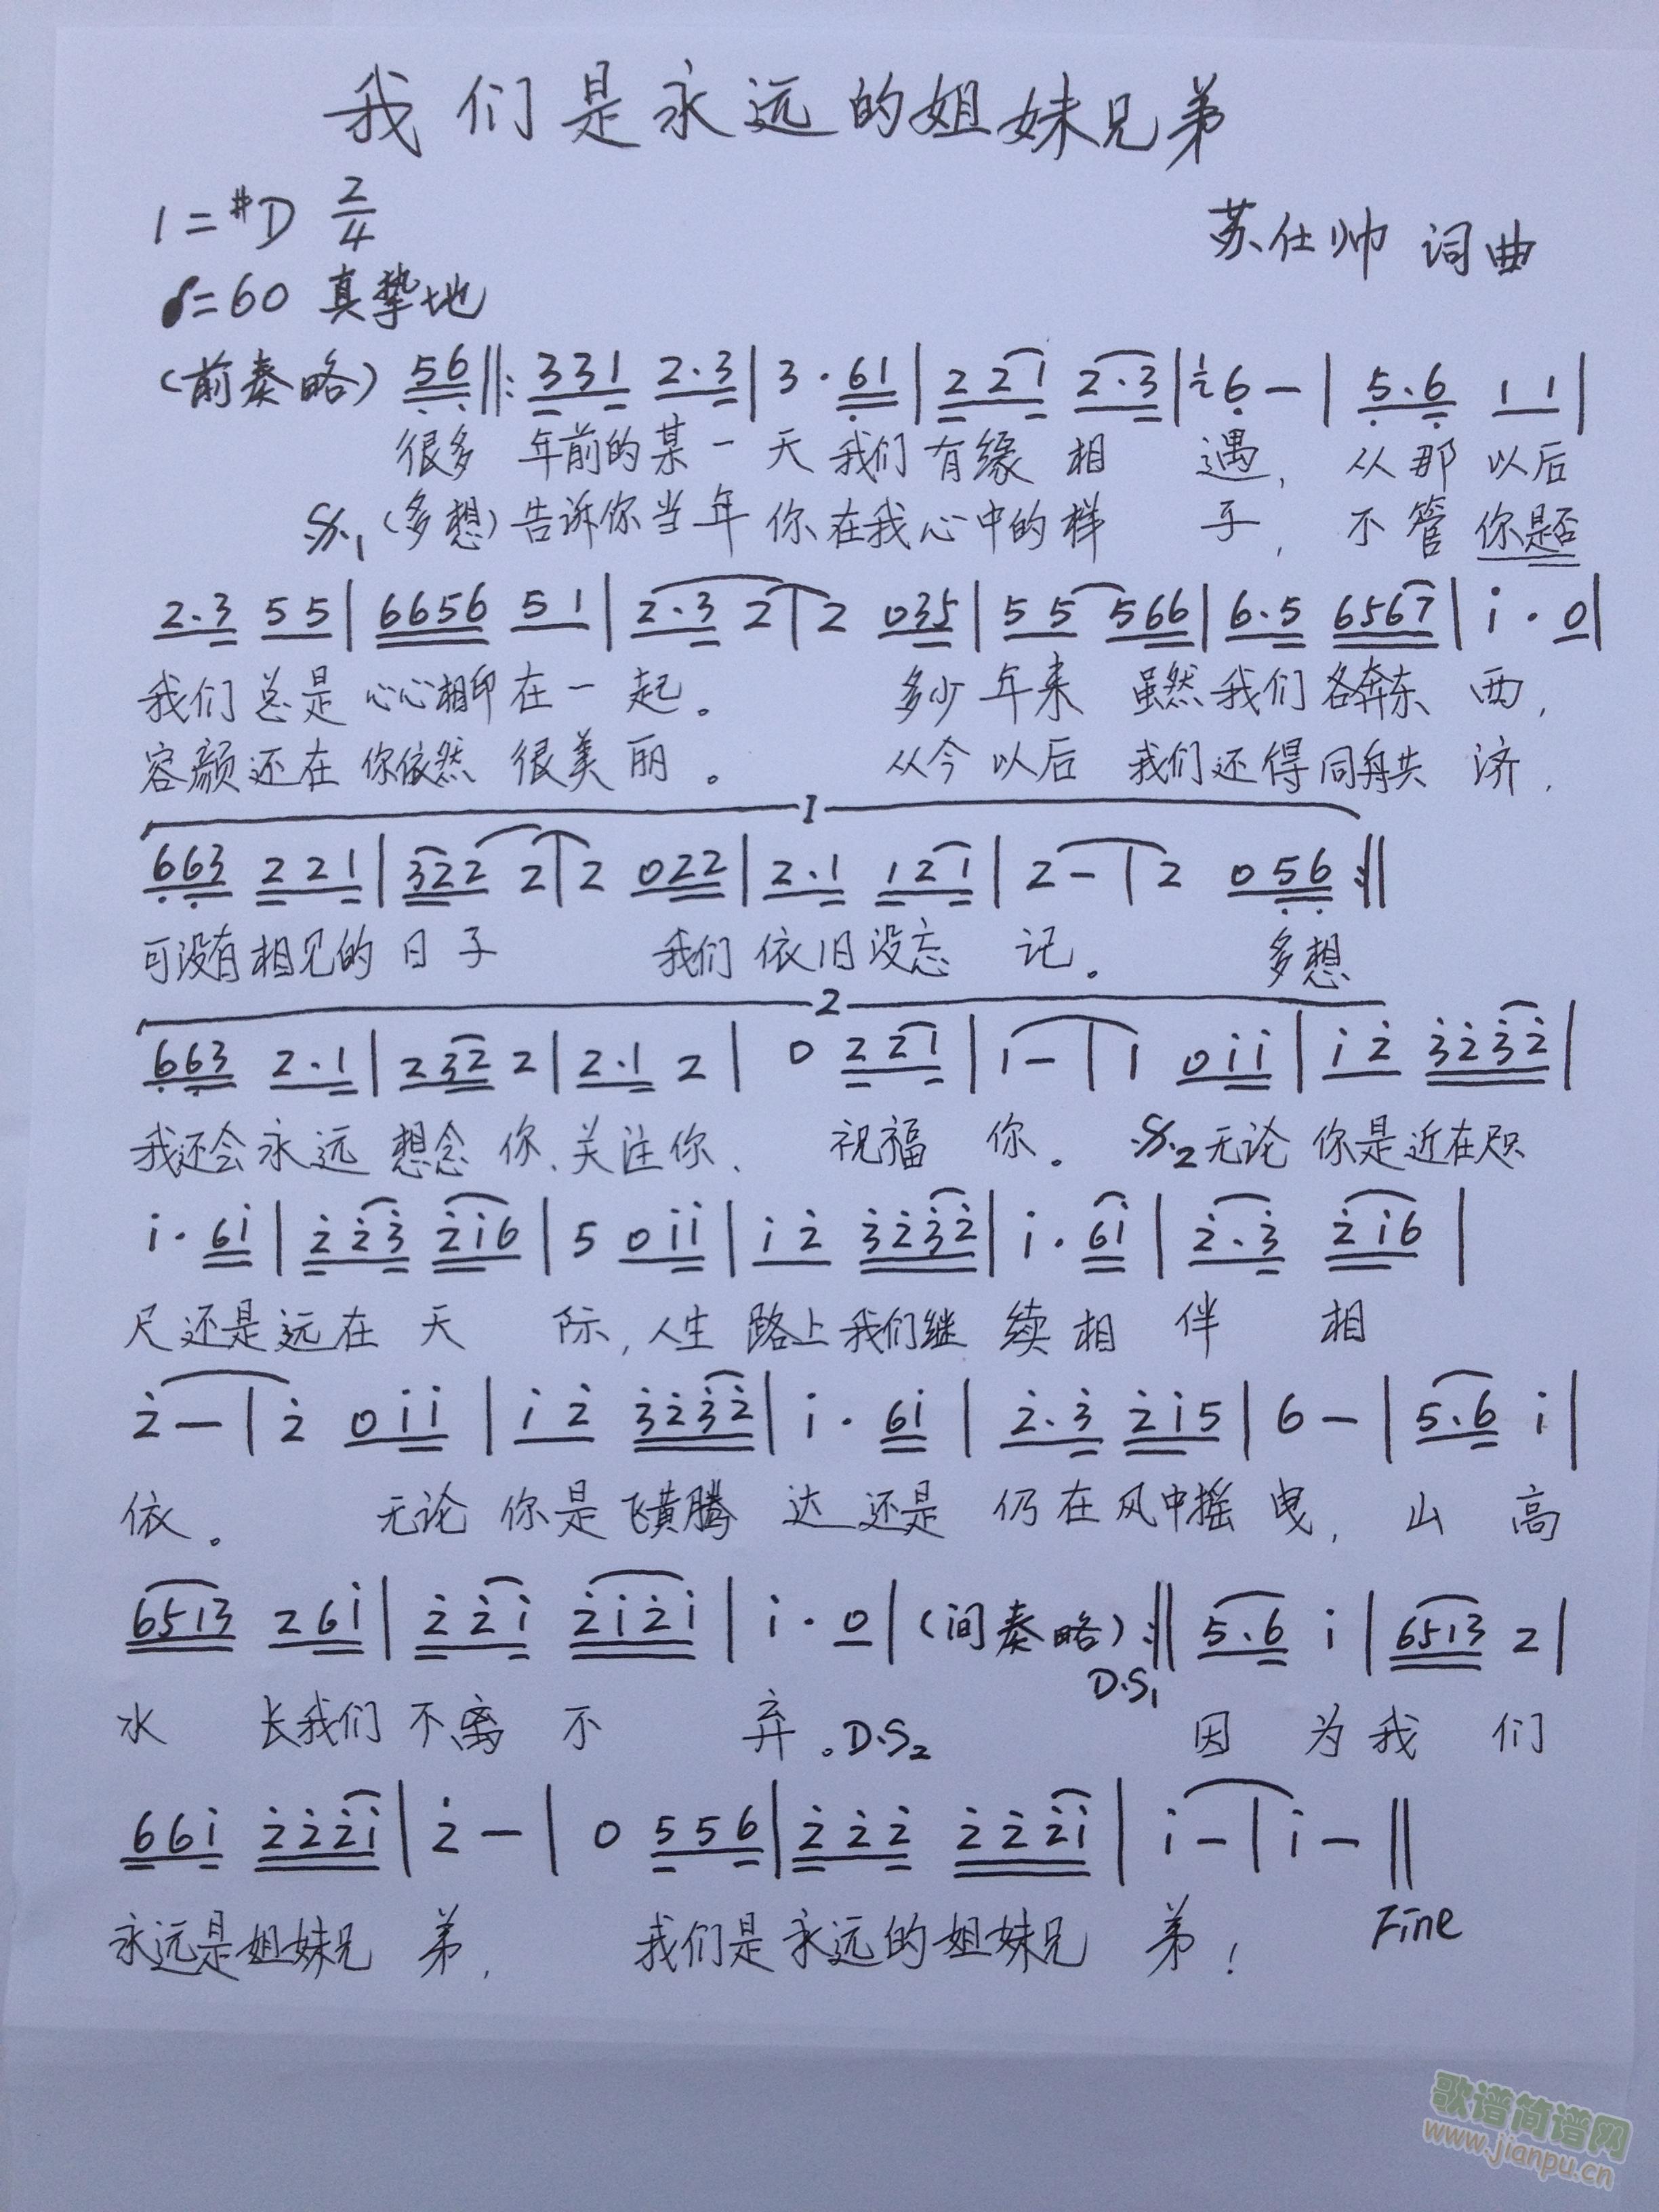 我们是永远的姐妹兄弟
1=#D 2/4
苏仕帅 词曲
♩=60 真挚地
(前奏略) 56‖: 331 2.3|3·61|221 2.3|6-|5.6 11|
很多 年前的某一天我们有缘相 遇, 从那以后
𝄋1(多想)告诉你当年你在我心中的样 子, 不管你是否
2.3 55|6656 51|2.3 2|2 035|55 566|6.5 6567|i·0|
我们总是心心相印在一起。 多少年来 虽然我们各奔东 西,
容颜还在你依然 很美丽。 从今以后 我们还得同舟共 济,
1
663 221|322 2|2 022|2.1 121|2-|2 056:‖
可没有相见的日子 我们依旧没忘 记。 多想
2
663 2.1|232 2|2.1 2|0 221|1-|1 0ii|i2 3232|
我还会永远 想念你、关注你、 祝福 你。 𝄋2无论你是近在咫
i·6i|223 2i6|5 0ii|i2 3232|i·6i|2.3 2i6|
尺还是远在天 际,人生路上我们继续相伴 相
2-|2 0ii|i2 3232|i·6i|2.3 2i5|6-|5.6 i|
依。 无论 你是飞黄腾 达还是 仍在风中摇曳, 山 高
6513 26i|22i 2i2i|i·0|(间奏略):‖5.6 i|6513 2|
D.S1
水 长我们不离不 弃。D.S2 因 为我 们
66i 222i|2-|0 556|222 222i|i-|i-‖
永远是姐妹兄 弟, 我们是永远的姐妹兄 弟!
Fine
歌谱简谱网
www.jianpu.cn